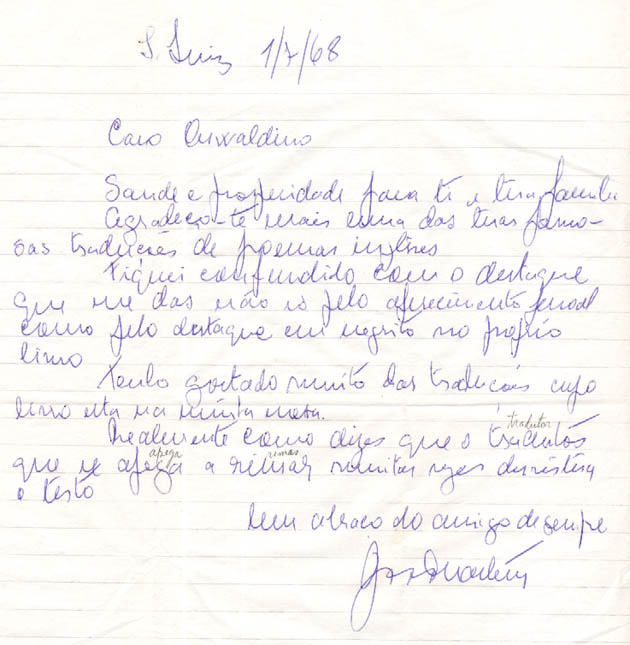 S. Luiz 1/7/68
Caro Oswaldino
Saude e prosperidade para ti e tua familia
Agradeço-te mais uma das tuas famo-
sas traducões de poemas inglêses
Fiquei confundido com o destaque
que me das não só pelo oferecimento pessoal
como pelo destaque em negrito no proprio
livro
Tenho gostado muito das traducões cujo
livro esta na minha mesa.
Realmente como dizes que o tradutôr tradutor
que se apega apega a rimas rimas muitas vezes
o texto
Um abraco do amigo de sempre